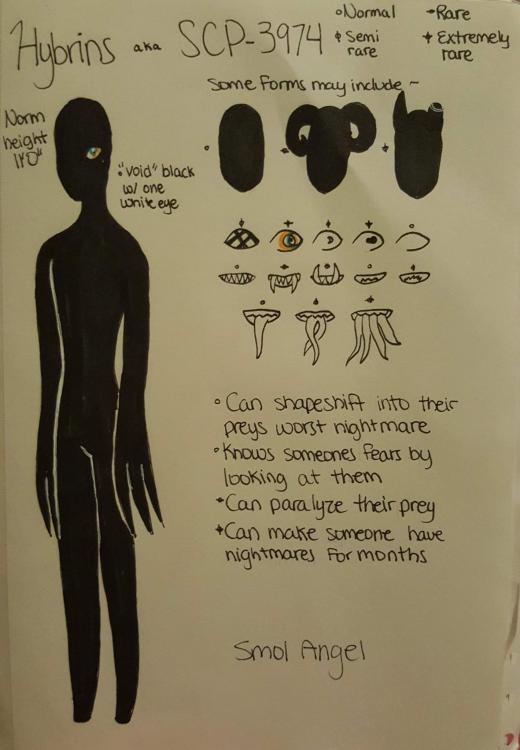 Hybrins aka SCP-3974
Normal
Semi rare
Rare
Extremely rare
Some Forms may include ~
Norm
height
11'0"
"void" black
w/ one
white eye
Can shapeshift into their
preys worst nightmare
Knows someones fears by
looking at them
Can paralyze their prey
Can make someone have
nightmares for months
Smol Angel